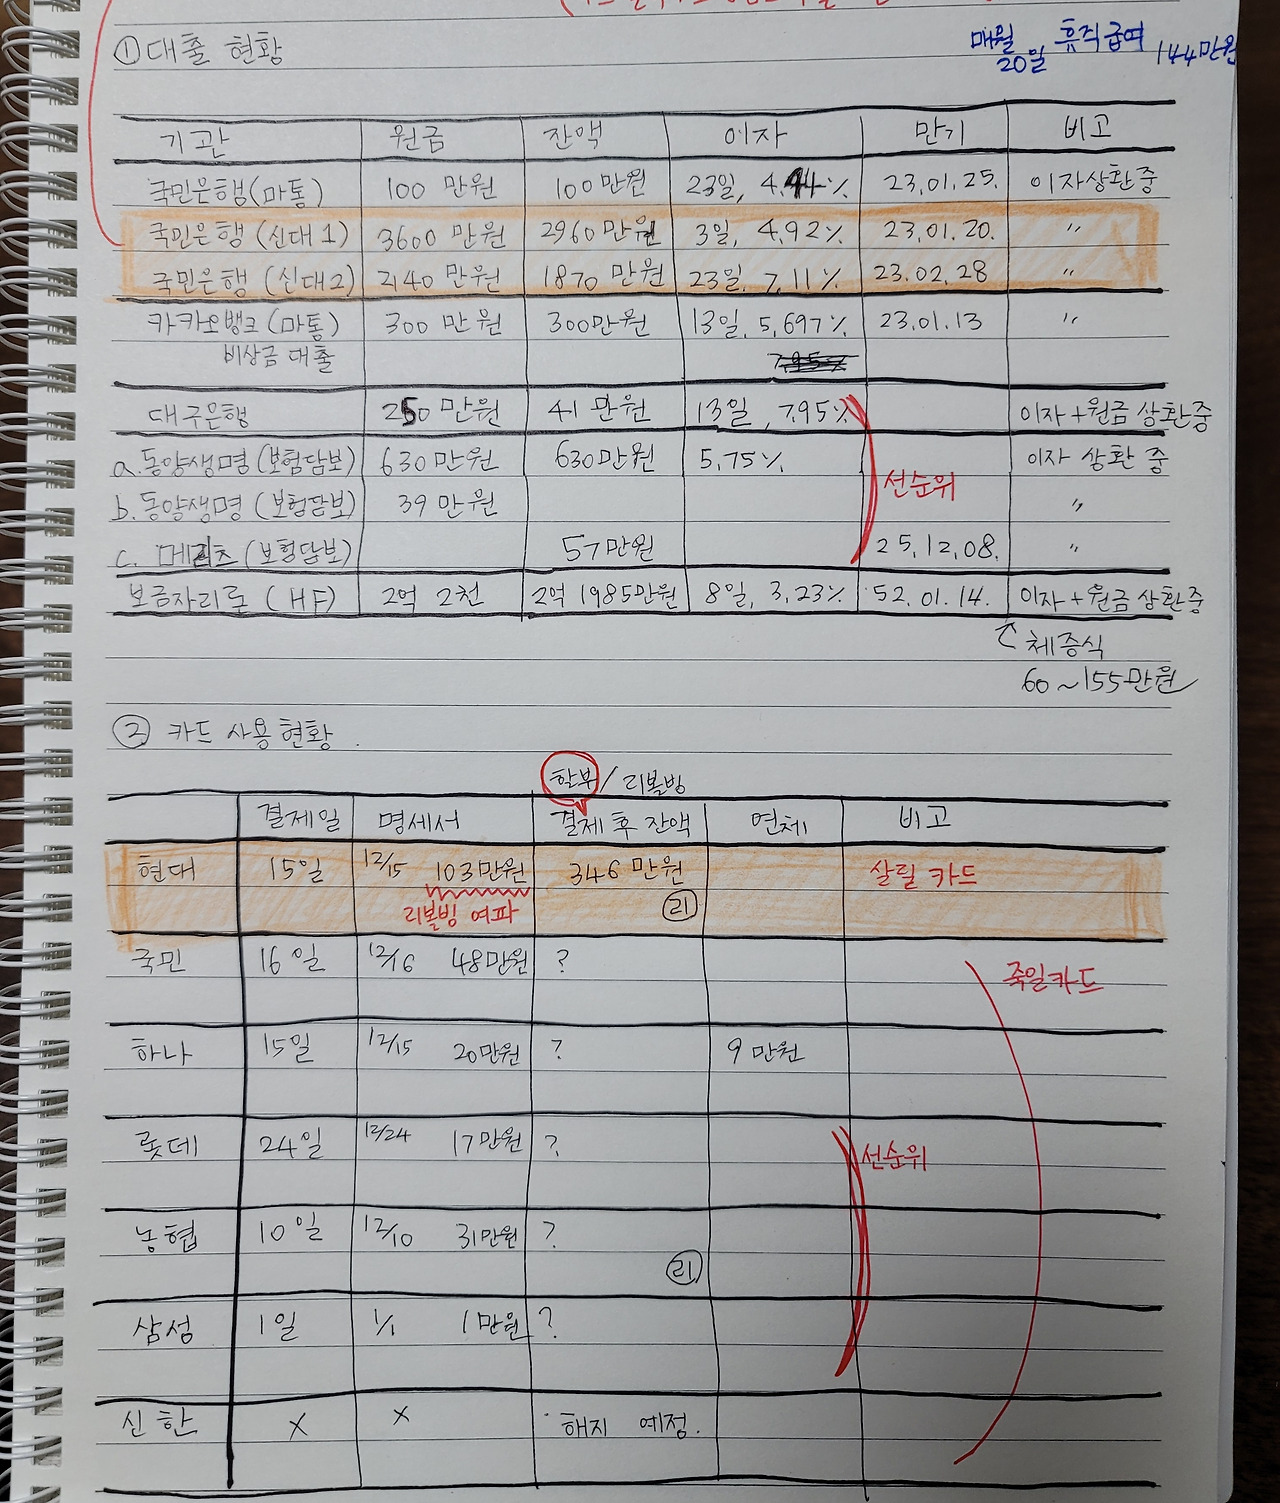 ① 대출 현황
매월 20일 휴직급여 144만원
기관 원금 잔액 이자 만기 비고
국민은행(마통) 100 만원 100만원 23일, 4.44% 23.01.25. 이자상환중
국민은행 (신대1) 3600 만원 2960만원 3일, 4.92% 23.01.20. "
국민은행 (신대2) 2140 만원 1870 만원 23일, 7.11% 23.02.28 "
카카오뱅크(마통) 300 만원 300만원 13일, 5.697% 23.01.13 "
비상금 대출 7.95%
대구은행 250 만원 41 만원 13일, 7.95% 이자+원금 상환중
a. 동양생명(보험담보) 630만원 630만원 5.75% 이자 상환 중
선순위
b. 동양생명 (보험담보) 39 만원 "
c. 메리츠 (보험담보) 57만원 25.12.08. "
보금자리론 (HF) 2억 2천 2억 1985만원 8일, 3.23% 52.01.14. 이자+원금 상환중
체증식
60~155만원
② 카드 사용현황.
할부/리볼빙
결제일 명세서 결제 후 잔액 연체 비고
현대 15일 12/15 103만원 346 만원 살릴 카드
리볼빙 여파 리
국민 16일 12/16 48만원 ? 죽일카드
하나 15일 12/15 20만원 ? 9 만원
롯데 24일 12/24 17만원 ? 선순위
농협 10일 12/10 31만원 ?
리
삼성 1일 1/1 1만원 ?
신한 X X 해지 예정.